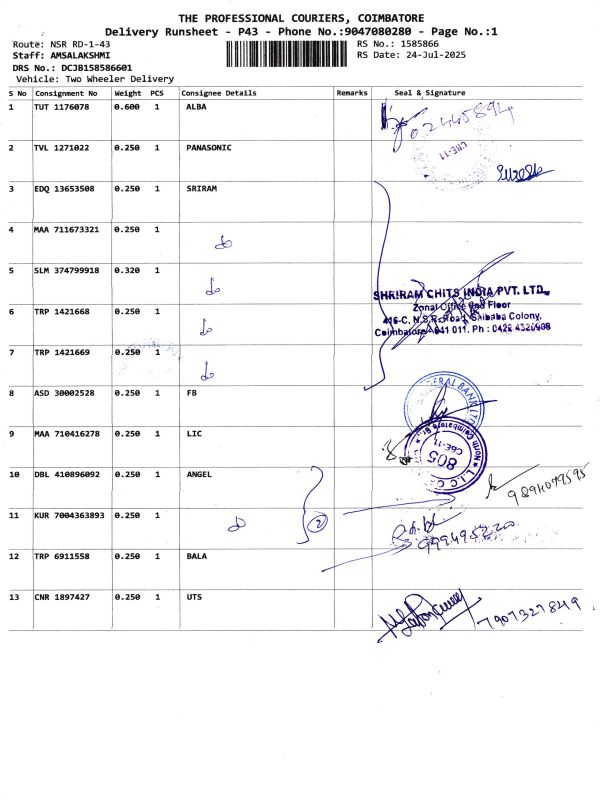 THE PROFESSIONAL COURIERS, COIMBATORE
Delivery Runsheet - P43 - Phone No.:9047080280 - Page No.:1
Route: NSR RD-1-43
RS No.: 1585866
Staff: AMSALAKSHMI
RS Date: 24-Jul-2025
DRS No.: DCJB158586601
Vehicle: Two Wheeler Delivery
S No Consignment No Weight PCS Consignee Details Remarks Seal & Signature
1 TUT 1176078 0.600 1 ALBA
2 TVL 1271022 0.250 1 PANASONIC
CBE-11
3 EDQ 13653508 0.250 1 SRIRAM
4 MAA 711673321 0.250 1
do
5 SLM 374799918 0.320 1
do
SHRIRAM CHITS INDIA PVT. LTD.,
Zonal Office 2nd Floor
6 TRP 1421668 0.250 1
do
416-C, N.S.R. Road, Saibaba Colony,
Coimbatore 641 011. Ph : 0422
7 TRP 1421669 0.250 1
do
8 ASD 30002528 0.250 1 FB
FEDERAL BANK LTD
9 MAA 710416278 0.250 1 LIC
805
CBE-11
10 DBL 410896092 0.250 1 ANGEL
11 KUR 7004363893 0.250 1
do
2
12 TRP 6911558 0.250 1 BALA
13 CNR 1897427 0.250 1 UTS
7907327849